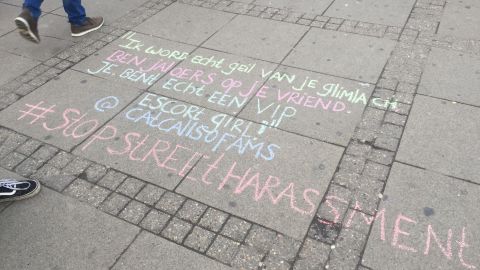 "IK WORD echt geil van je glimlach.
Ben jaloers op je vriend.
Je bent echt een VIP
escort girl!"
@CATCALLSOFAMS
#STOPSTREETHARASSMENT